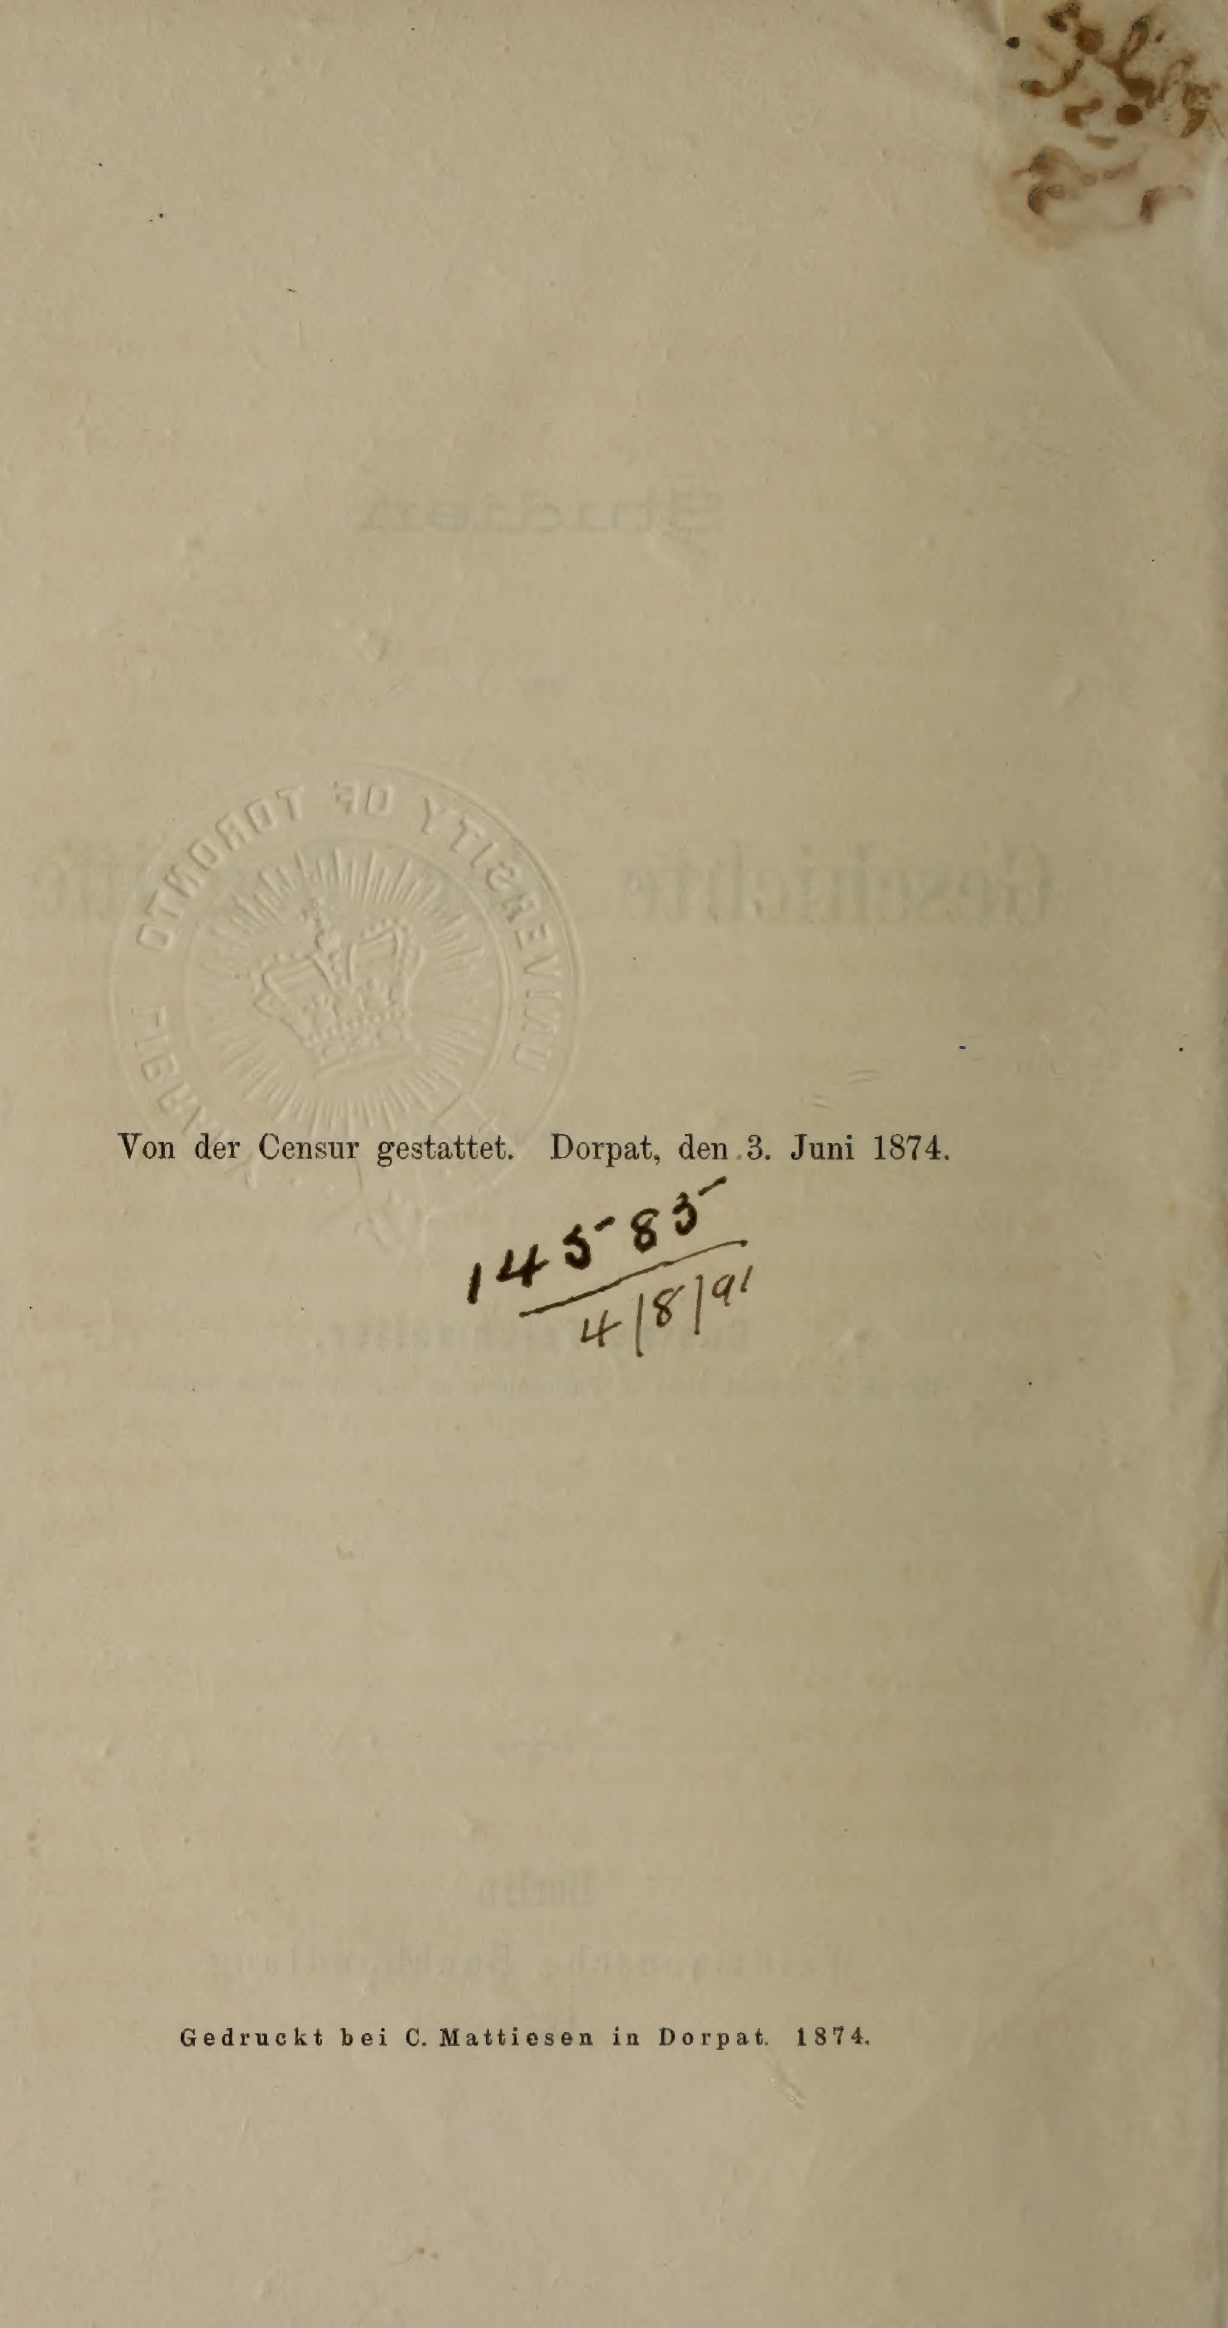 UNIVERSITY OF TORONTO
Von der Censur gestattet. Dorpat, den 3. Juni 1874.
14585
4/8/91
Gedruckt bei C. Mattiesen in Dorpat. 1874.